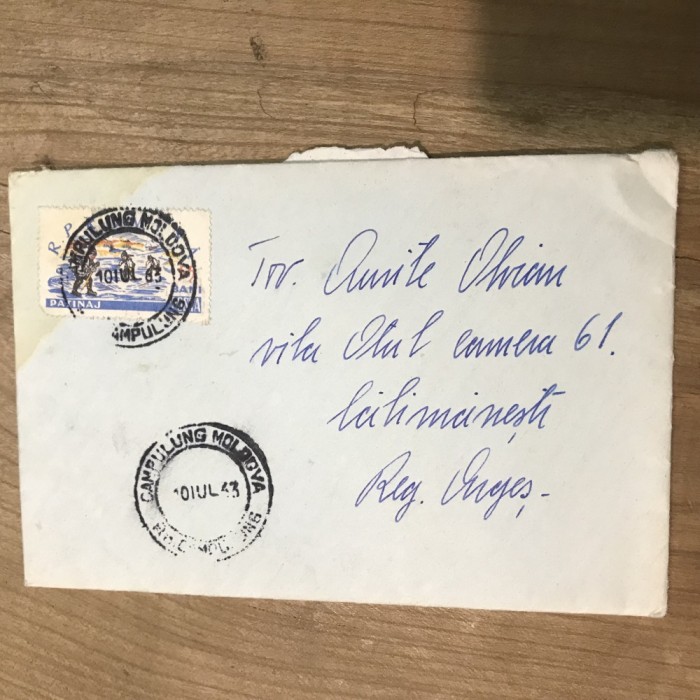 R.P.
PATINAJ
CAMPULUNG MOLDOVA
10 IUL 63
Tov.
vila Oltul camera 61.
Călimănești
Reg. Argeș.-
CAMPULUNG MOLDOVA
10 IUL 63